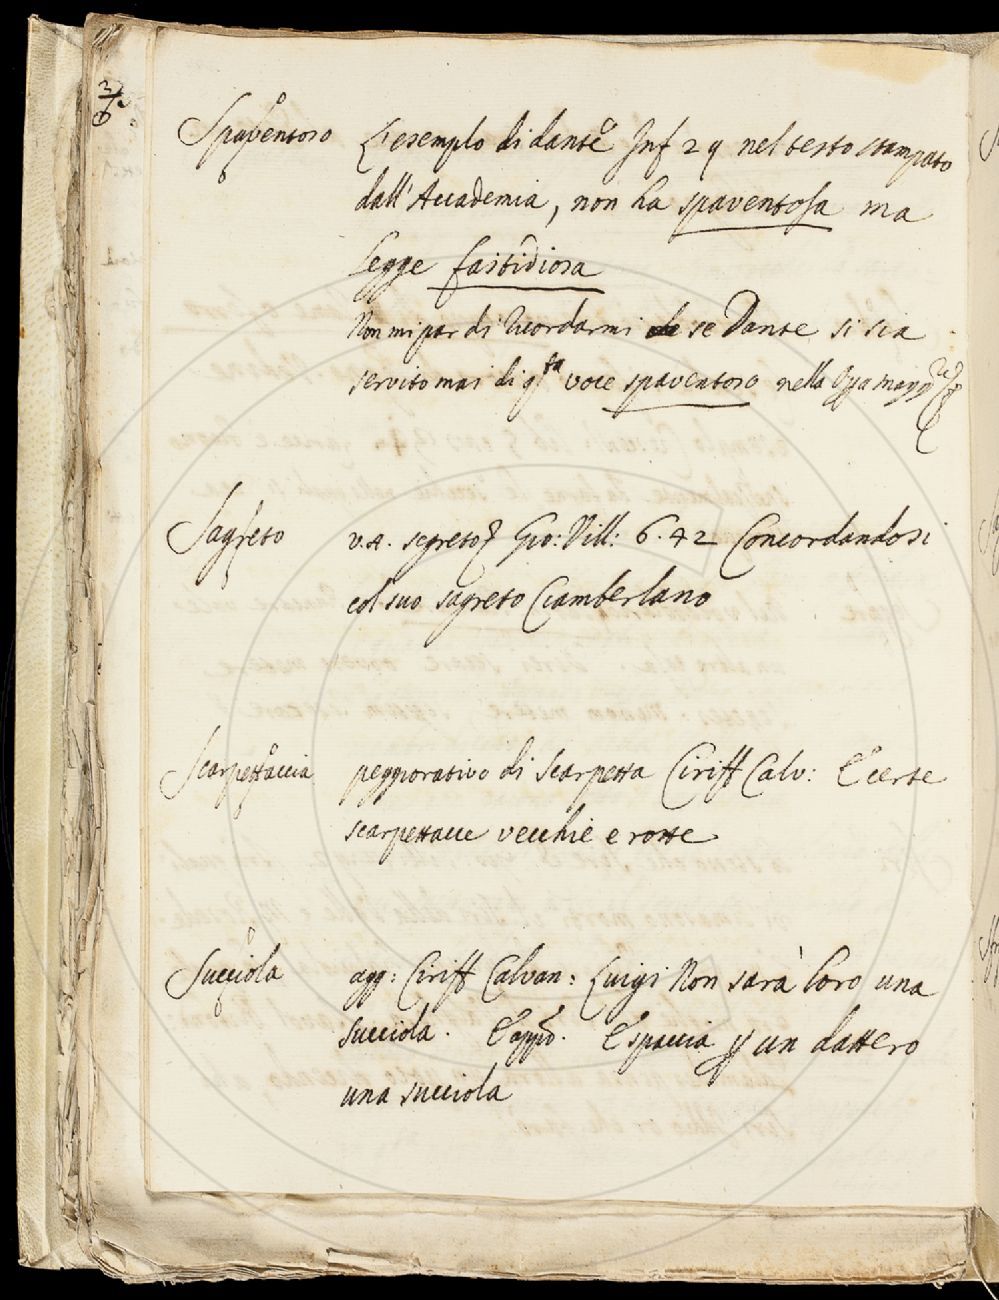 Spaventoso L'esemplo di dante Inf 29 nel testo stampato
dall'Accademia, non ha spaventosa ma
legge fastidiosa
Non mi par di ricordarmi se Dante si sia
servito mai di q.sta voce spaventoso nella
Sagreto v.A. segreto Gio: Vill: 6.42 Concordandosi
col suo sagreto Ciamberlano
Scarpettaccia peggiorativo di scarpetta Ciriff Calv: E certe
scarpettacce vecchie e rotte
Succiola agg: Ciriff Calvan: Luigi Non sarà loro una
succiola. E app.o. E spaccia p un dattero
una succiola